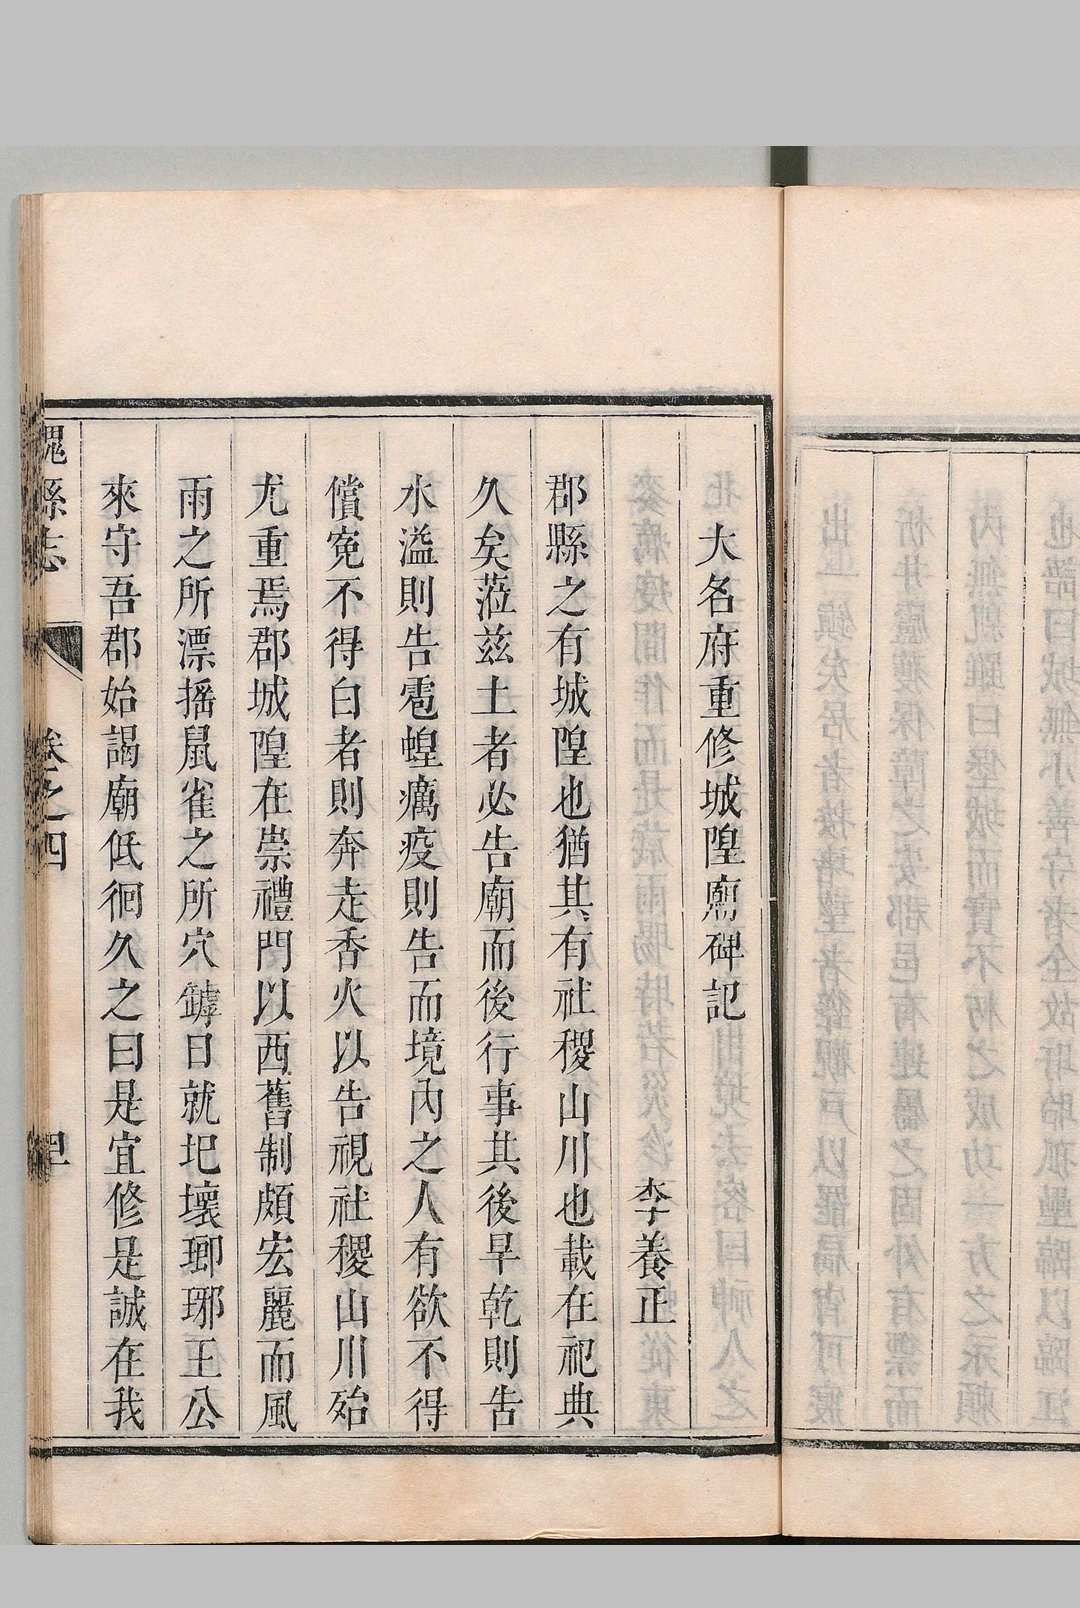 大名府重修城隍廟碑記
李養正
郡縣之有城隍也猶其有社稷山川也載在祀典
久矣蒞兹土者必告廟而後行事其後旱乾則告
水溢則告雹蝗癘疫則告而境內之人有欲不得
償寃不得白者則奔走香火以告視社稷山川殆
尤重焉郡城隍在崇禮門以西舊制頗宏麗而風
雨之所漂摇鼠雀之所穴罅日就圮壞瑯琊王公
來守吾郡始謁廟低徊久之曰是宜修是誠在我
縣志 卷之四